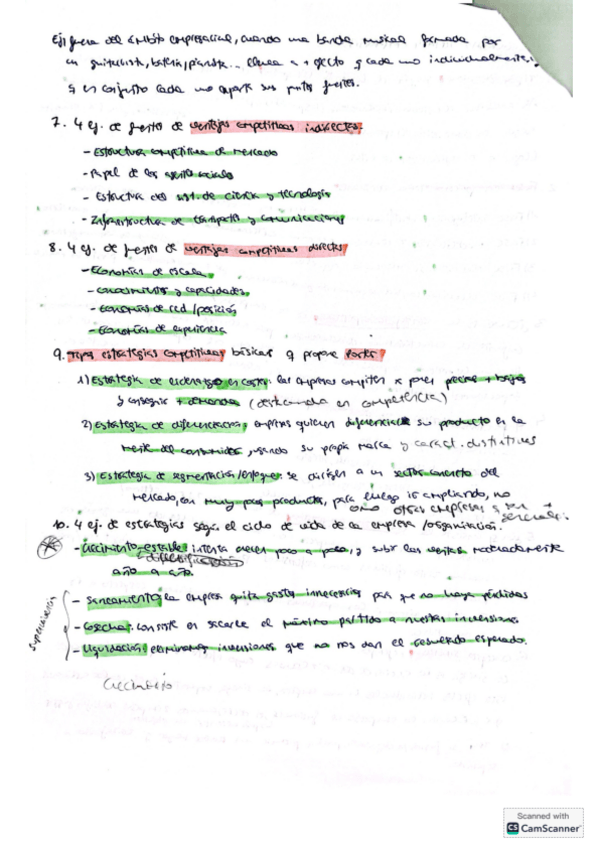 Ej) fuera del ámbito empresarial, cuando una banda musical formada por
un guitarrista, batería, pianista... efecto y cada uno individualmente
y en conjunto cada uno aporta sus puntos fuertes.
7. 4 ej. de fuentes de ventajas competitivas indirectas:
- Estructura competitiva de mercado
- Papel de los agentes sociales
- Estructura del sist. de ciencia y tecnología
- Infraestructura de transporte y comunicaciones
8. 4 ej. de fuentes de ventajas competitivas directas:
- Economías de escala
- conocimientos y capacidades
- economías de red / posición
- Economías de experiencia
9. Tipos estrategias competitivas básicas q propone Porter
1) Estrategia de liderazgo en costes: las empresas compiten x poner precios + bajos
y conseguir + demanda (desbancando en competencia)
2) Estrategia de diferenciación: empresas quieren diferenciar su producto en la
mente del consumidor, usando su propia marca y caract. distintivas
3) Estrategia de segmentación/enfoque: se dirigen a un sector concreto del
mercado, con muy pocos productos, para luego ir ampliando, no
como otras empresas q son
10. 4 ej. de estrategias según el ciclo de vida de la empresa / organización.
- Crecimiento estable: intenta crecer poco a poco, y subir las ventas moderadamente
diversificación
año a año.
Supervivencia
- Saneamiento: la empresa quita gastos innecesarios para que no haya pérdidas
- Cosecha: consiste en sacarle el máximo partido a nuestras inversiones.
- Liquidación: eliminamos inversiones que no nos dan el resultado esperado.
Crecimiento
Scanned with
CS CamScanner